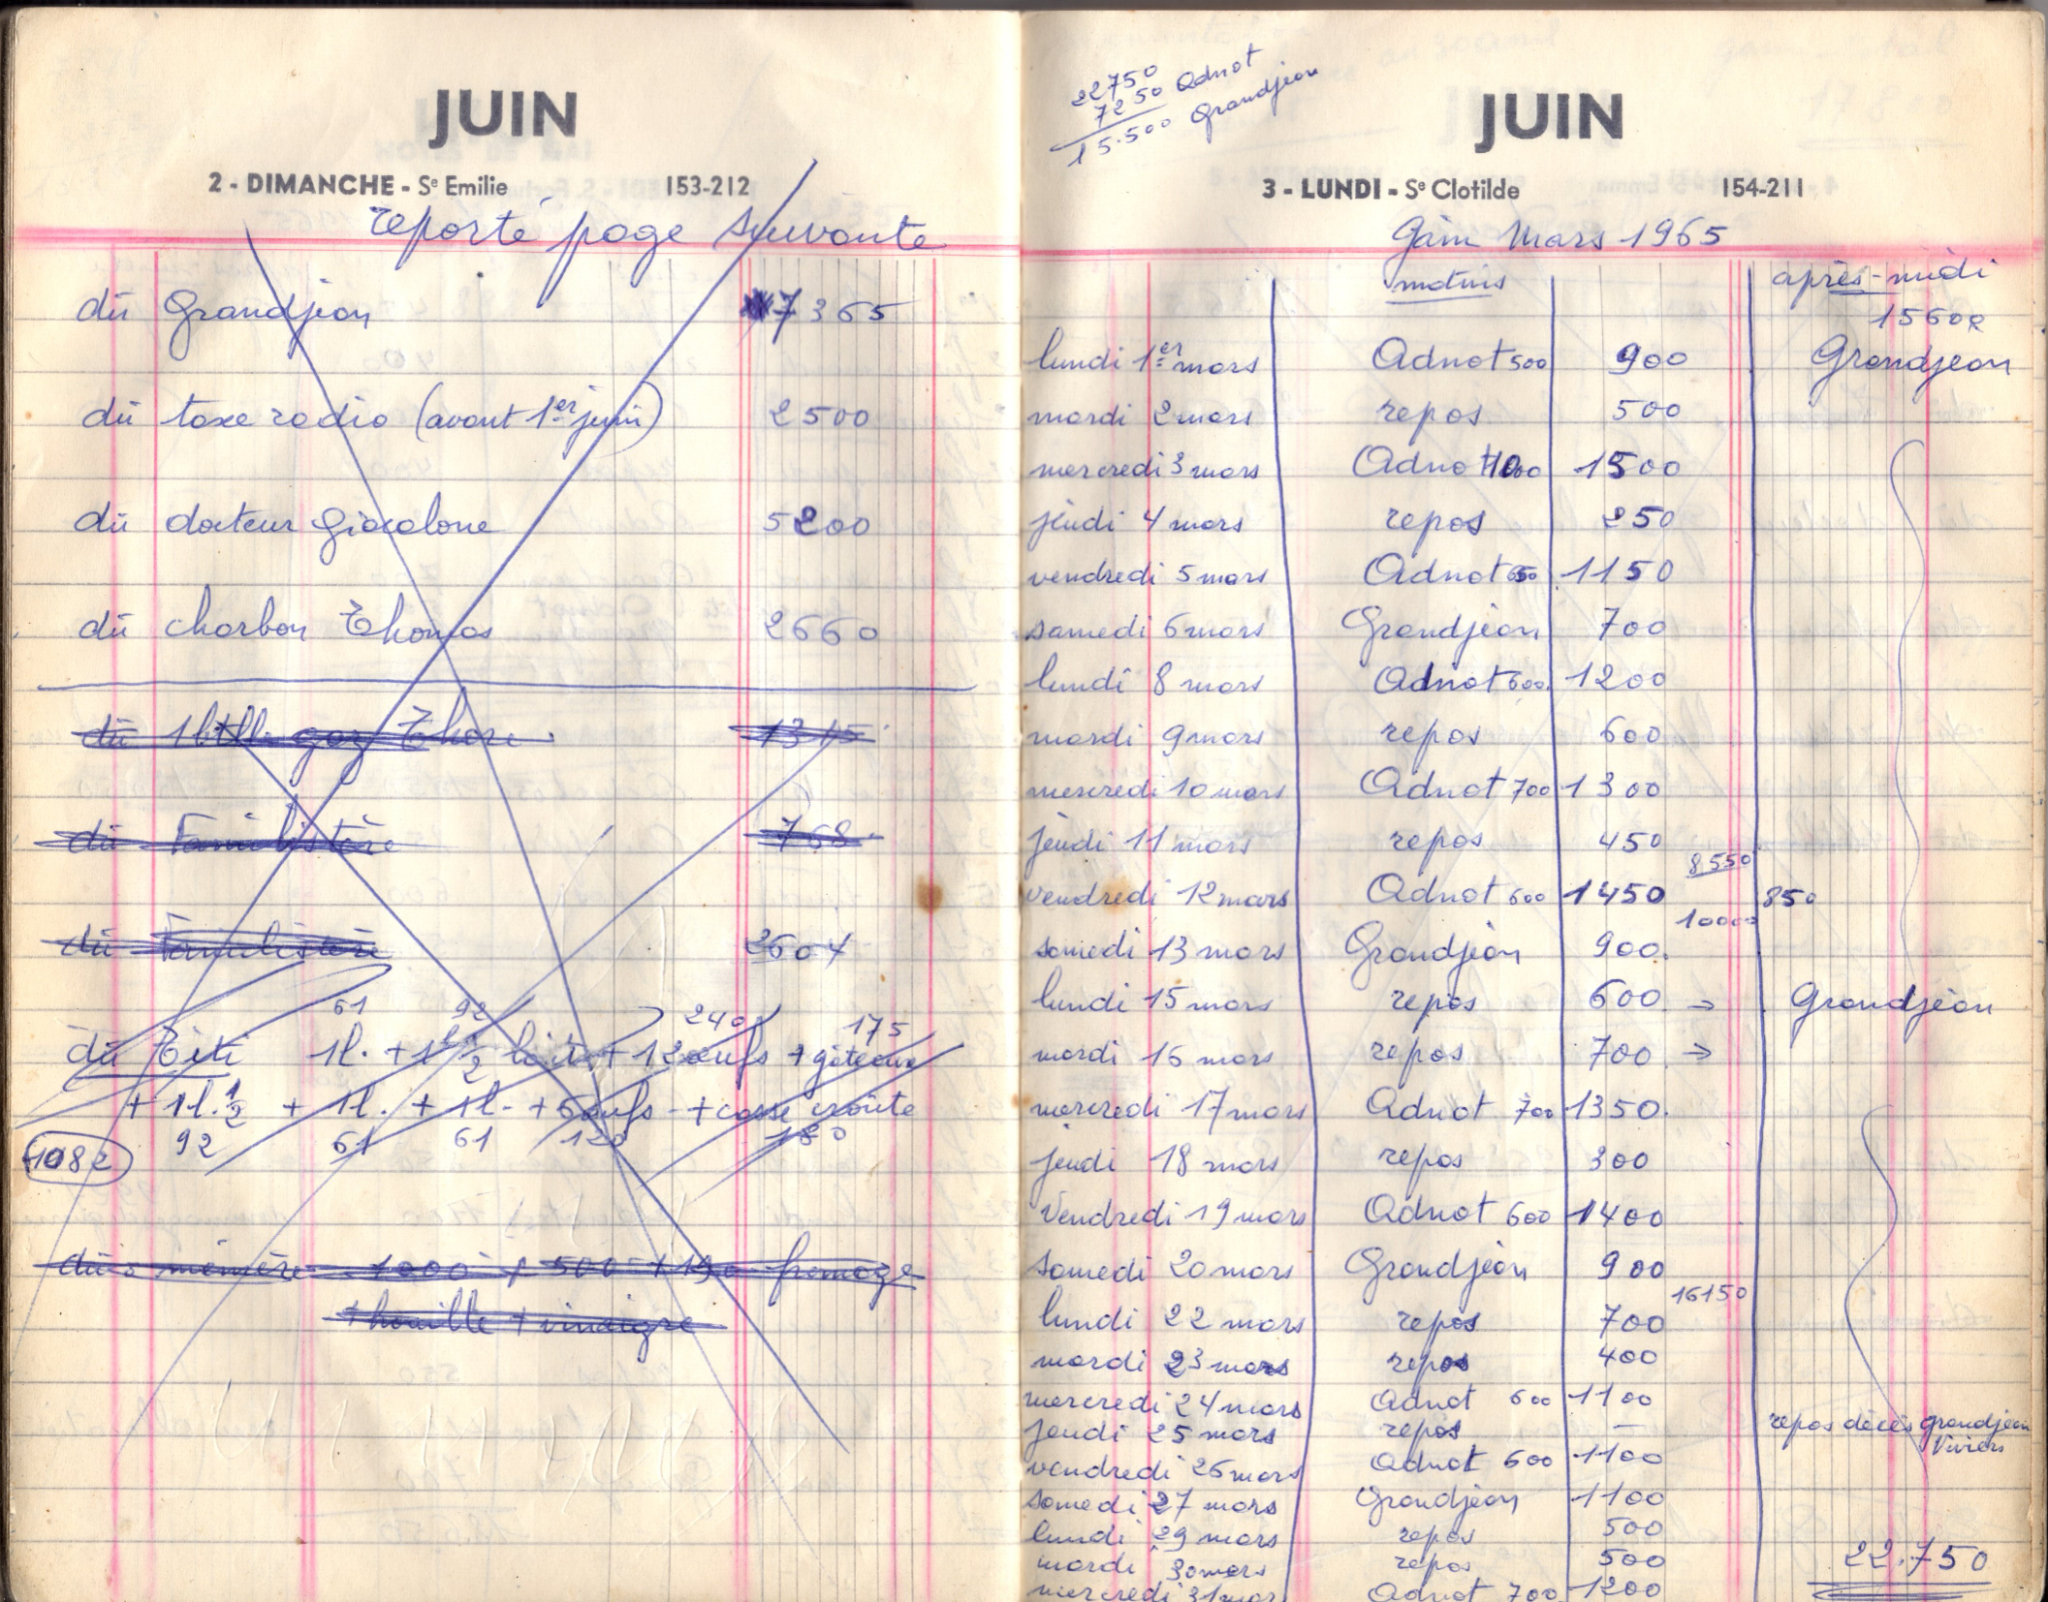 JUIN
2 - DIMANCHE - Sᵉ Emilie 153-212
reporté page suivante
dû Grandjean 7365
dû taxe radio (avant 1er juin) 2500
dû docteur Giacalone 5200
dû charbon Thomas 2660
dû 1 btll. gaz Thore 1315
dû Familistère 768
dû Familistère 2604
61 92 240 175
dû Titi 1l. + 1l 1/2 lait + 12 œufs + gâteaux
+ 1l. 1/2 + 1l. + 1l. + 6 œufs + casse croûte
92 61 61 120 180
1082
dû à mémère 1000 + 500 + 190 fromage
+ houille + vinaigre
22750
7250 Adnot
15.500 Grandjean
JUIN
3 - LUNDI - Sᵉ Clotilde 154-211
Gain Mars 1965
matins après-midi
15600
lundi 1er mars Adnot 500 900 Grandjean
mardi 2 mars repos 500
mercredi 3 mars Adnot 1000 1500
jeudi 4 mars repos 250
vendredi 5 mars Adnot 650 1150
samedi 6 mars Grandjean 700
lundi 8 mars Adnot 600 1200
mardi 9 mars repos 600
mercredi 10 mars Adnot 700 1300
jeudi 11 mars repos 450
8550
vendredi 12 mars Adnot 600 1450 850
10000
samedi 13 mars Grandjean 900.
lundi 15 mars repos 600 → Grandjean
mardi 16 mars repos 700 →
mercredi 17 mars Adnot 700 1350.
jeudi 18 mars repos 300
Vendredi 19 mars Adnot 600 1400
samedi 20 mars Grandjean 900
16150
lundi 22 mars repos 700
mardi 23 mars repos 400
mercredi 24 mars Adnot 600 1100
jeudi 25 mars repos — repos décès grandjean
Viviers
vendredi 26 mars Adnot 600 1100
samedi 27 mars Grandjean 1100
lundi 29 mars repos 500
mardi 30 mars repos 500 22.750
mercredi 31 mar Adnot 700 1200